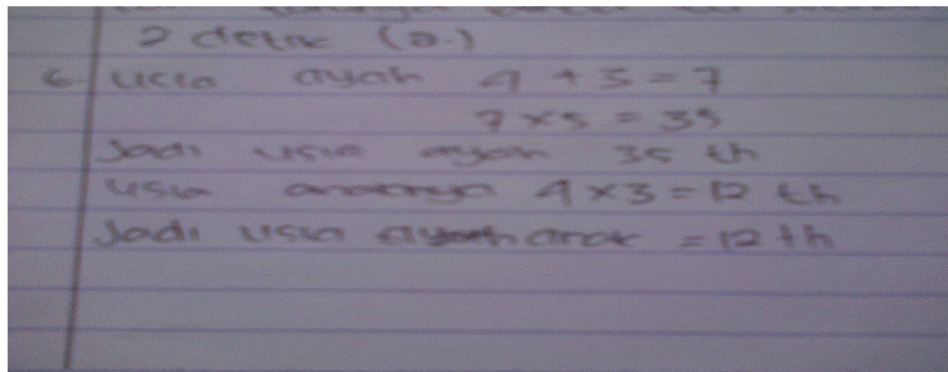 2 detik (a.)
6. usia ayah 4 + 3 = 7
7 x 5 = 35
Jadi usia ayah 35 th
usia anaknya 4 x 3 = 12 th
Jadi usia anak = 12 th